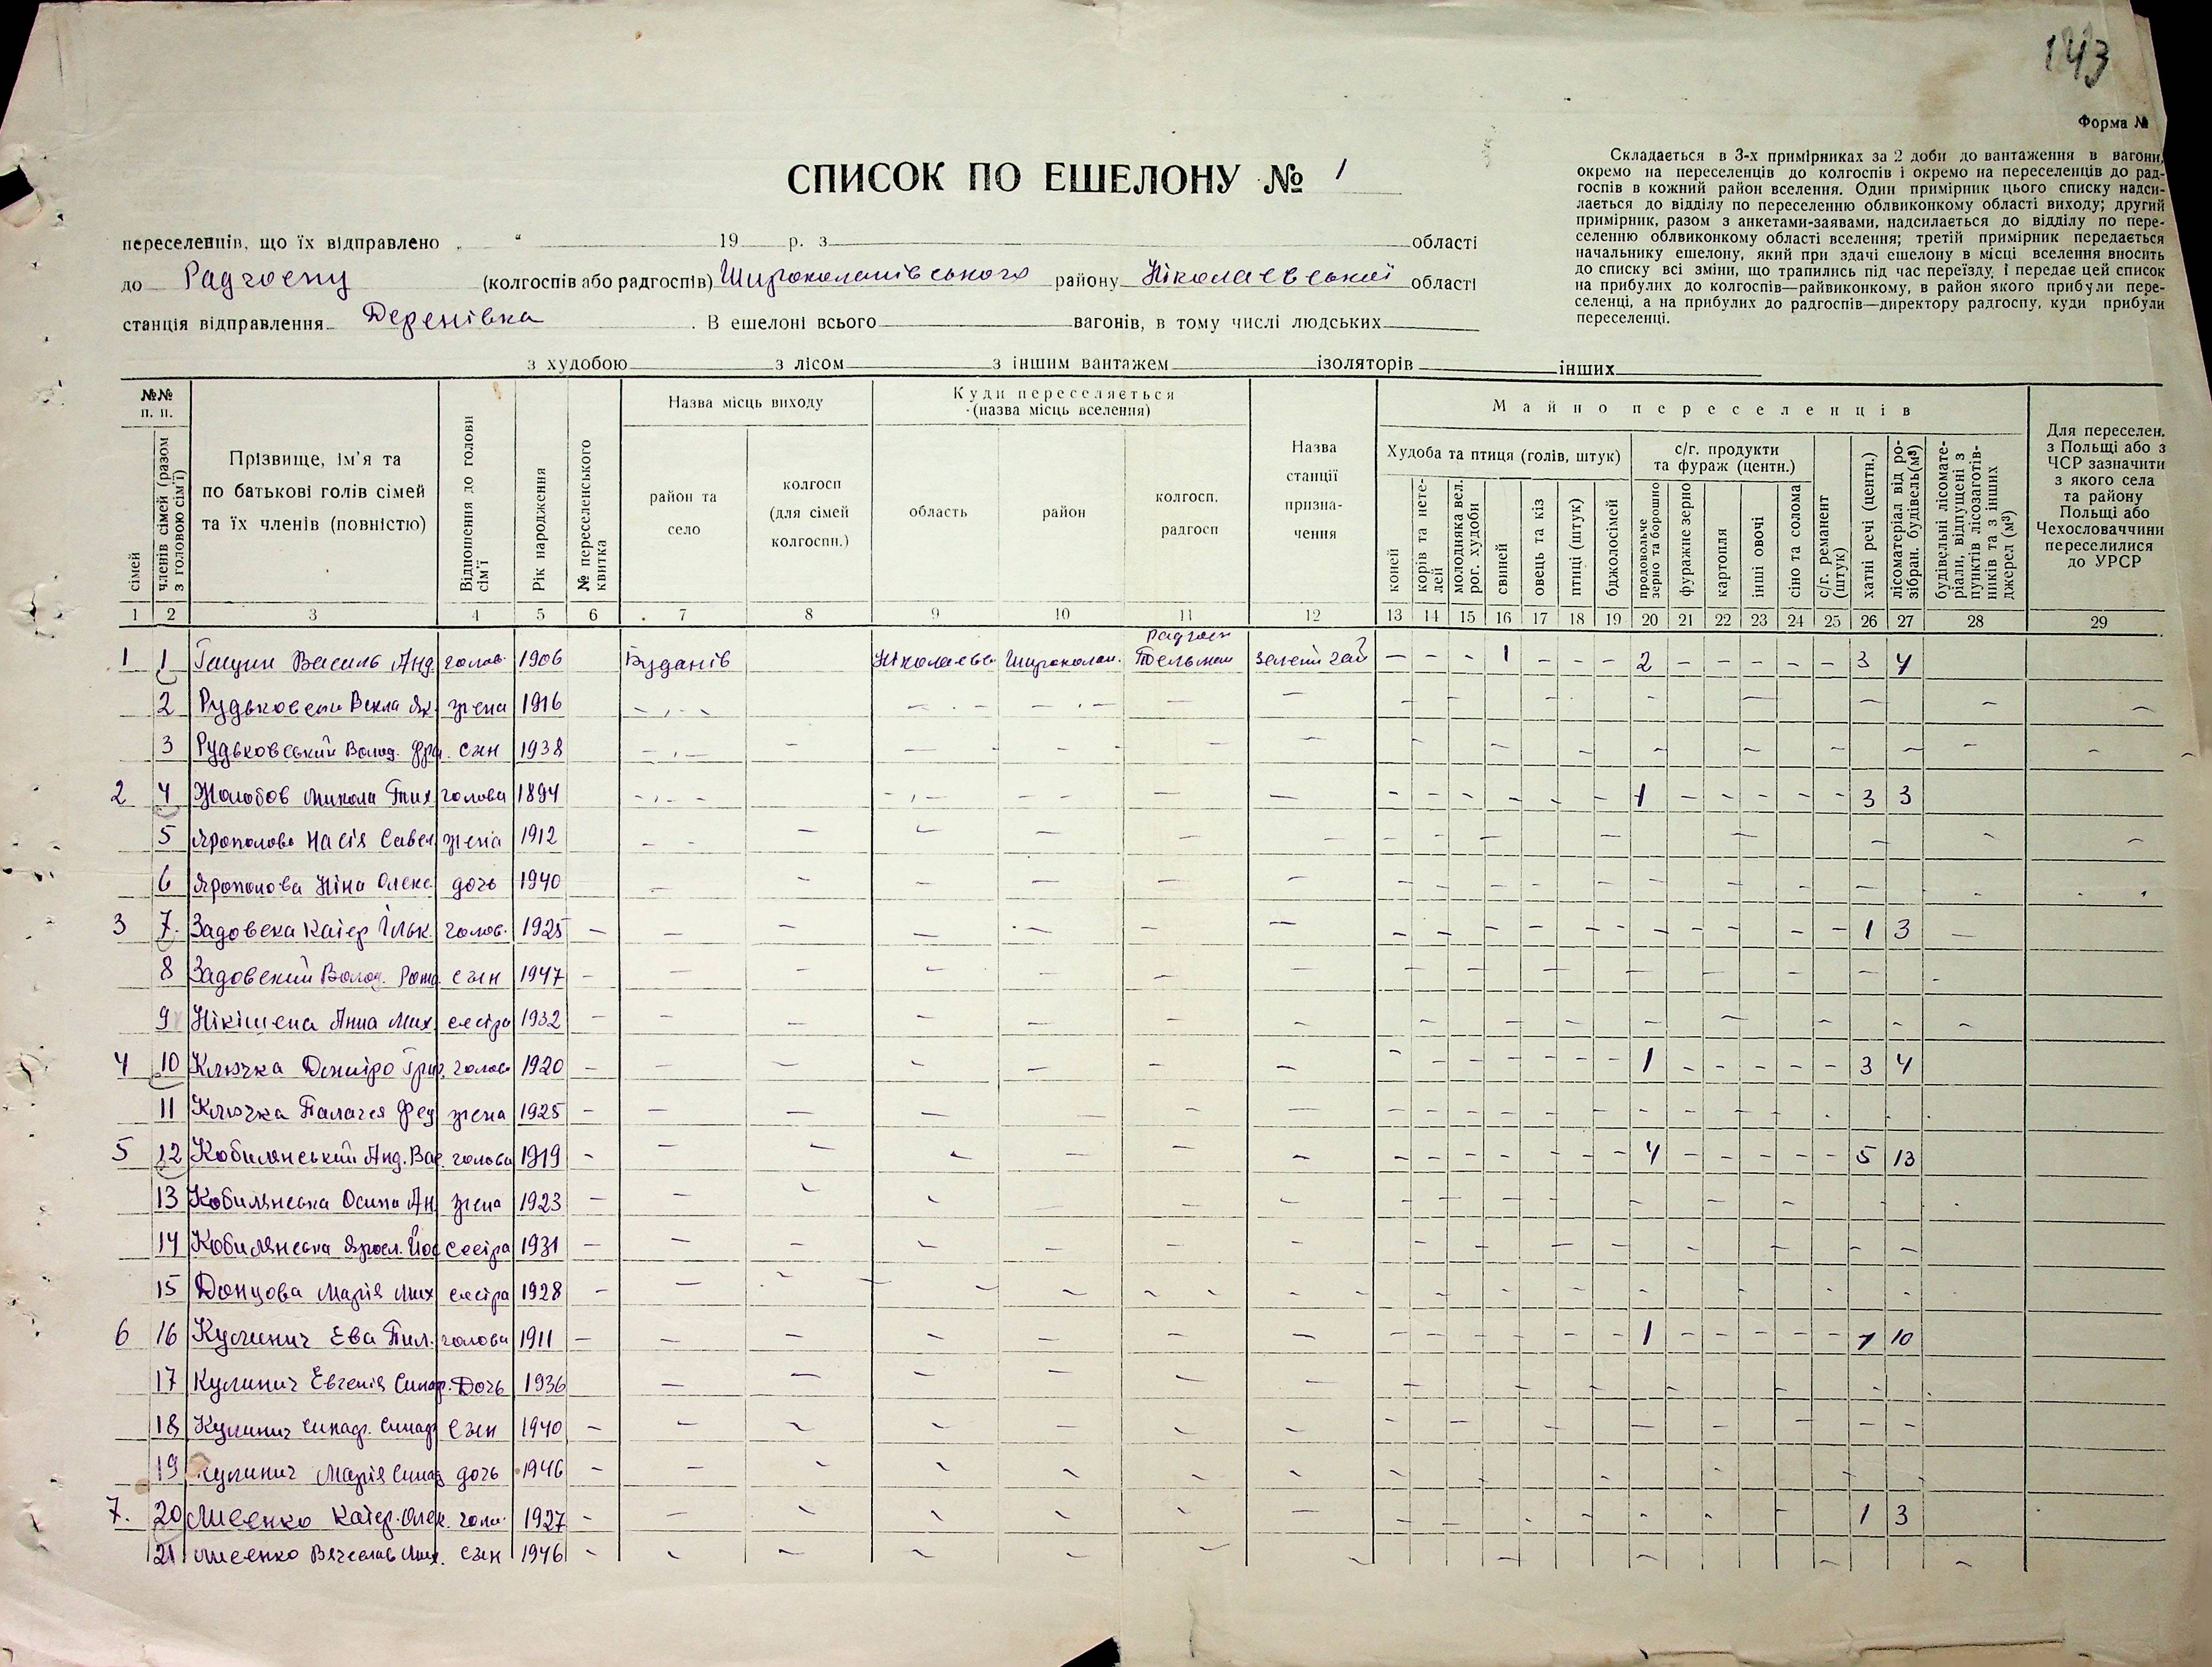 143
Форма №
СПИСОК ПО ЕШЕЛОНУ № 1
Складається в 3-х примірниках за 2 доби до вантаження в вагони,
окремо на переселенців до колгоспів і окремо на переселенців до рад-
госпів в кожний район вселення. Один примірник цього списку надси-
лається до відділу по переселенню облвиконкому області виходу; другий
примірник, разом з анкетами-заявами, надсилається до відділу по пере-
селенню облвиконкому області вселення; третій примірник передається
начальнику ешелону, який при здачі ешелону в місці вселення вносить
до списку всі зміни, що трапились під час переїзду, і передає цей список
на прибулих до колгоспів—райвиконкому, в район якого прибули пере-
селенці, а на прибулих до радгоспів—директору радгоспу, куди прибули
переселенці.
переселенців, що їх відправлено „ “ 19 р. з области
до Радгоспу (колгоспів або радгоспів) Широколанівського району Ніколаєвської області
станція відправлення Деренівка. В ешелоні всього вагонів, в тому числі людських
з худобою з лісом з іншим вантажем ізоляторів інших
№№ п. п.
сімей
членів сімей (разом з головою сім'ї)
Прізвище, ім'я та
по батькові голів сімей
та їх членів (повністю)
Відношення до голови сім'ї
Рік народження
№ переселенського квитка
Назва місць виходу
район та
село
колгосп
(для сімей
колгоспн.)
Куди переселяється
(назва місць вселення)
область
район
колгосп.
радгосп
Назва
станції
призна-
чення
Майно переселенців
Худоба та птиця (голів, штук)
коней
корів та нете-
лей
молодняка вел.
рог. худоби
свиней
овець та кіз
птиці (штук)
бджолосімей
с/г. продукти
та фураж (центн.)
продовольче
зерно та борошно
фуражне зерно
картопля
інші овочі
сіно та солома
с/г. реманент
(штук)
хатні речі (центн.)
лісоматеріал від ро-
зібран. будівель(м³)
будівельні лісомате-
ріали, відпущені з
пунктів лісозаготів-
ників та з інших
джерел (м³)
Для переселен.
з Польщі або з
ЧСР зазначити
з якого села
та району
Польщі або
Чехословаччини
переселилися
до УРСР
1 2 3 4 5 6 7 8 9 10 11 12 13 14 15 16 17 18 19 20 21 22 23 24 25 26 27 28 29
радгосп
1 1 Василь Анд. голов. 1906 Буданів Ніколаєвс Широколан. Тельман Зелений гай – – – 1 – – – 2 – – – – – 3 4
2 Рудьковськ Векла Як. жена 1916
3 Рудьковський Волод. Фра. син 1938
2 4 Жолобов Микола Тих. голова 1894 – – – – – – – 1 – – – – – 3 3
5 Ярополова Насія Савел. жена 1912
6 Ярополова Ніна Олекс. дочь 1940
3 7. Задовска Катер Ільк. голов. 1925 – 1 3
8 Задовский Волод. Ром. син 1947
9 Анна Мих. сестра 1932
4 10 Ключка Дмитро Григ. голова 1920 – – – – – – – 1 – – – – – 3 4
11 Ключка Палагея Фед. жена 1925
5 12 Кобилянський Анд. Вас. голова 1919 – – – – – – – 4 – – – – – 5 13
13 Кобилянська Осипа Ан. жена 1923
14 Кобилянська Яросл. Йос. сестра 1931
15 Донцова Марія Мих. сестра 1928
6 16 Кулинич Ева Пил. голова 1911 – 1 – – – – – 7 10
17 Кулинич Евгенія Синоф. Дочь 1936
18 Кулинич Синоф. Синоф. син 1940
19 Кулинич Марія Синоф. дочь 1946
7. 20 Лисенко Катер. Олек. голов. 1927 – 1 3
21 Лисенко Вячеслав Мих. син 1946